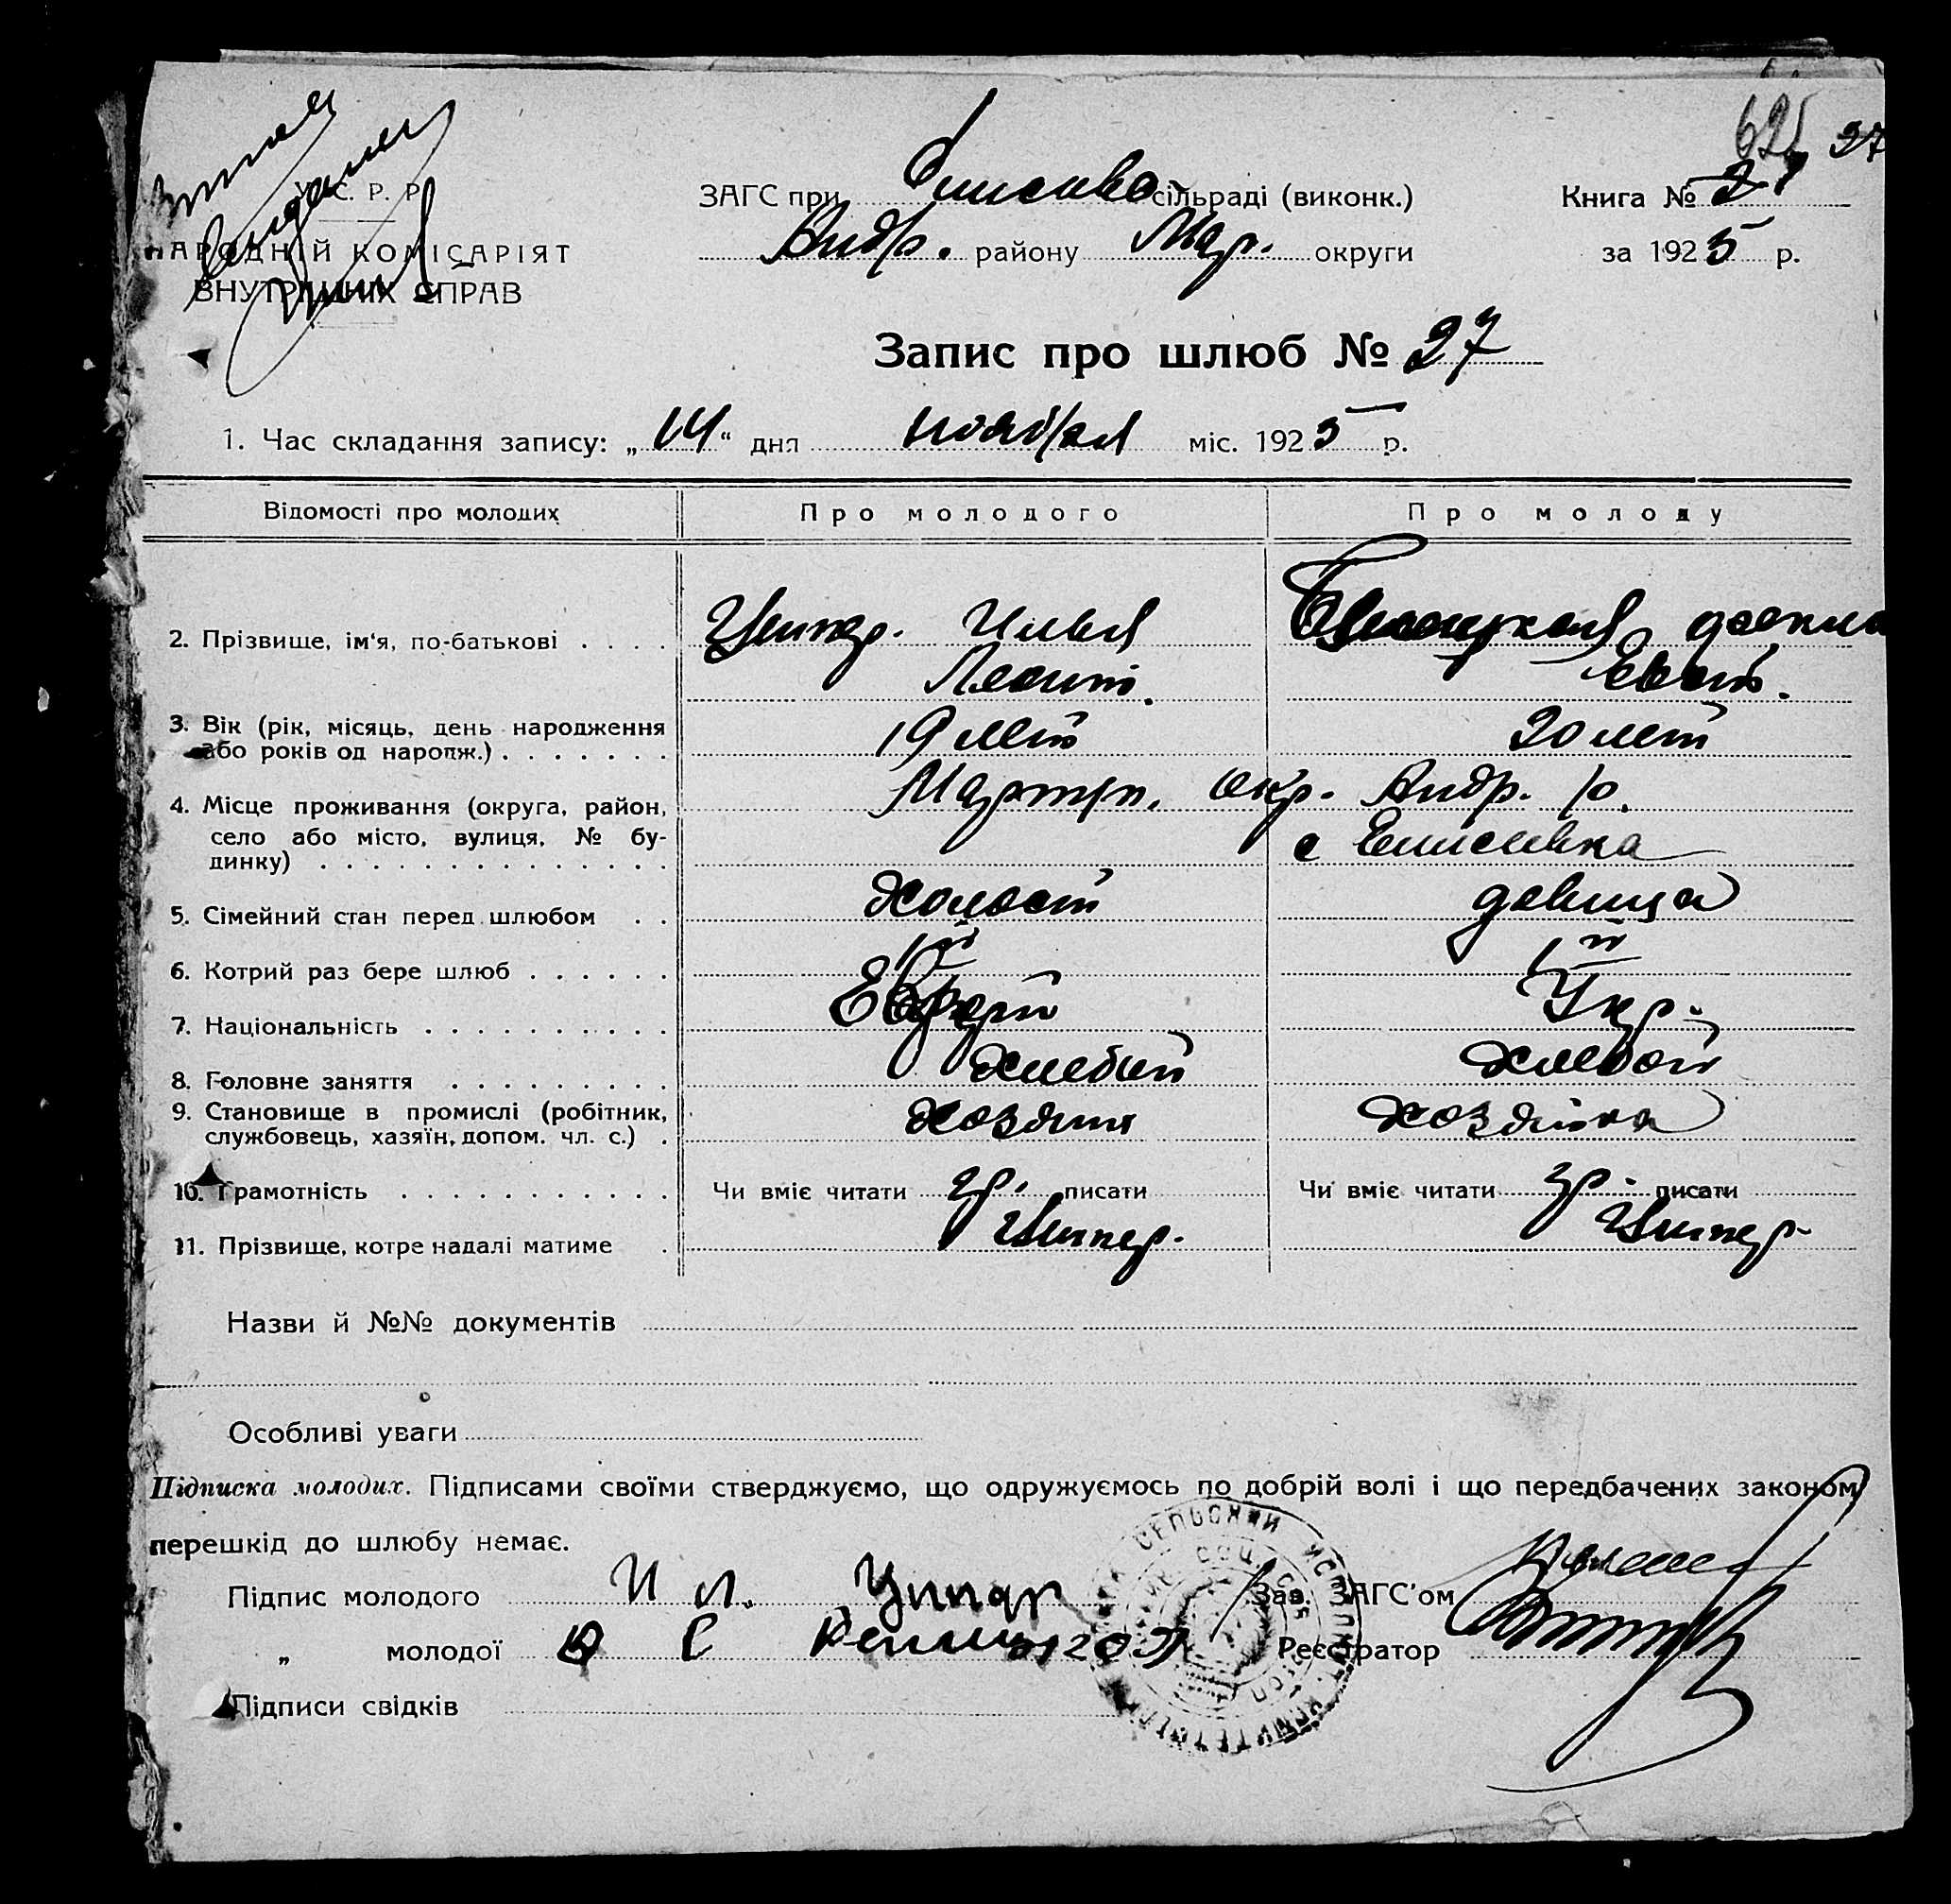 27
У. С. Р. Р.
ЗАГС при сільраді (виконк.)
Книга № 27
НАРОДНІЙ КОМІСАРІЯТ
ВНУТРІШНІХ СПРАВ
Андр. району Мар. округи
за 1925 р.
Запис про шлюб № 27
1. Час складання запису: „14“ дня ноября міс. 1925 р.
Відомості про молодих
Про молодого
Про молоду
2. Прізвище, ім‘я, по-батькові . . . . Ципер. Илья
Леонт. Евст.
3. Вік (рік, місяць, день народження
або років од народж.) . . . . . . . 19 лет 20 лет
4. Місце проживання (округа, район, окр. Андр. р.
село або місто, вулиця, № бу-
динку) . . . . . . . . . . . . . . с Елисеевка
5. Сімейний стан перед шлюбом . . холост девица
6. Котрий раз бере шлюб . . . . . . 1й 1й
7. Національність . . . . . . . . . . Укр.
8. Головне заняття . . . . . . . . .
9. Становище в промислі (робітник,
службовець, хазяїн, допом. чл. с.) . хозяин хозяйка
10. Грамотність . . . . . . . . . . . . Чи вміє читати гр. писати Чи вміє читати гр. писати
11. Прізвище, котре надалі матиме . Ципер. Ципер
Назви й №№ документів
Особливі уваги
Підписка молодих. Підписами своїми стверджуємо, що одружуємось по добрій волі і що передбачених законом
перешкід до шлюбу немає.
Підпис молодого И Л. Ципер Зав. ЗАГС’ом
„ молодої Реєстратор
Підписи свідків
СЕЛЬСКИЙ ИСПОЛНИТ. КОМИТЕТ